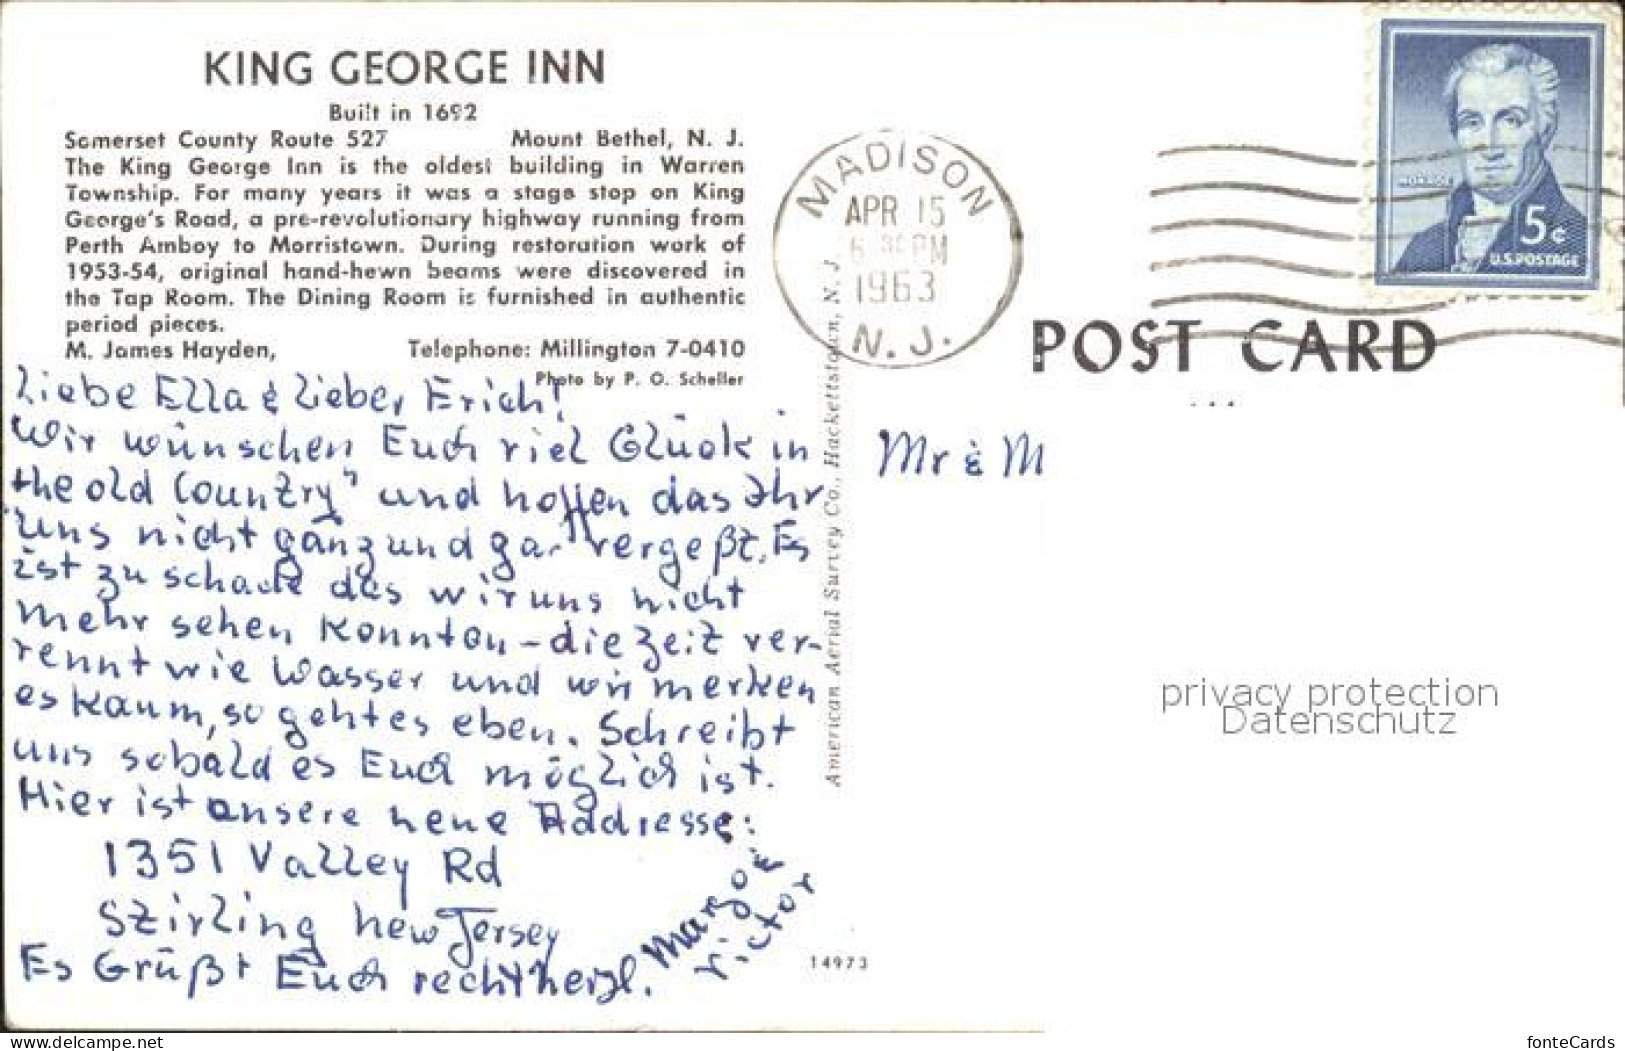 KING GEORGE INN
Built in 1692
Somerset County Route 527 Mount Bethel, N. J.
The King George Inn is the oldest building in Warren
Township. For many years it was a stage stop on King
George's Road, a pre-revolutionary highway running from
Perth Amboy to Morristown. During restoration work of
1953-54, original hand-hewn beams were discovered in
the Tap Room. The Dining Room is furnished in authentic
period pieces.
M. James Hayden, Telephone: Millington 7-0410
Photo by P. O. Scheller
Liebe Ella & lieber Erich!
Wir wünschen Euch viel Glück in
the old Country" und hoffen das Ihr
uns nicht ganz und gar vergeßt. Es
ist zu schade das wir uns nicht
mehr sehen konnten - die Zeit ver-
rennt wie Wasser und wir merken
es kaum, so geht es eben. Schreibt
uns sobald es Euch möglich ist.
Hier ist unsere neue Addresse:
1351 Valley Rd
Stirling New Jersey
Es Grüßt Euch recht herzl.
Margot &
Victor
14973
American Aerial Survey Co., Hackettstown, N. J.
MADISON
APR 15
PM
1963
N. J.
MONROE
5¢
U.S. POSTAGE
POST CARD
Mr & M
privacy protection
Datenschutz
www.delcampe.net
fonteCards